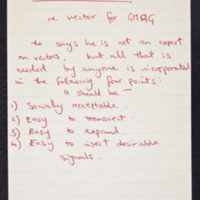 re vector for GMAG
He says he is not an expert
on vectors, but all that is
needed by anyone is incorporated
in the following four points:
It should be —
1) Socially acceptable
2) Easy to transvect.
3) Easy to expand.
4) Easy to insert desirable
signals.